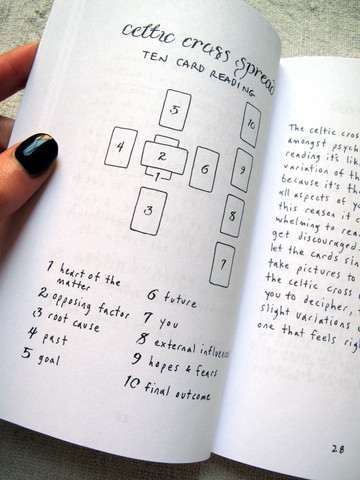 celtic cross spread
TEN CARD READING
5
10
4
2
6
9
1
3
8
7
1 heart of the
matter
2 opposing factor
3 root cause
4 past
5 goal
6 future
7 you
8 external influences
9 hopes & fears
10 final outcome
The celtic cross
amongst psych
reading it's lik
variation of th
because it's th
all aspects of yo
this reason it c
whelming to rea
get discouraged.
let the cards sin
take pictures to
the celtic cross
you to decipher,
slight variations
one that feels righ
28